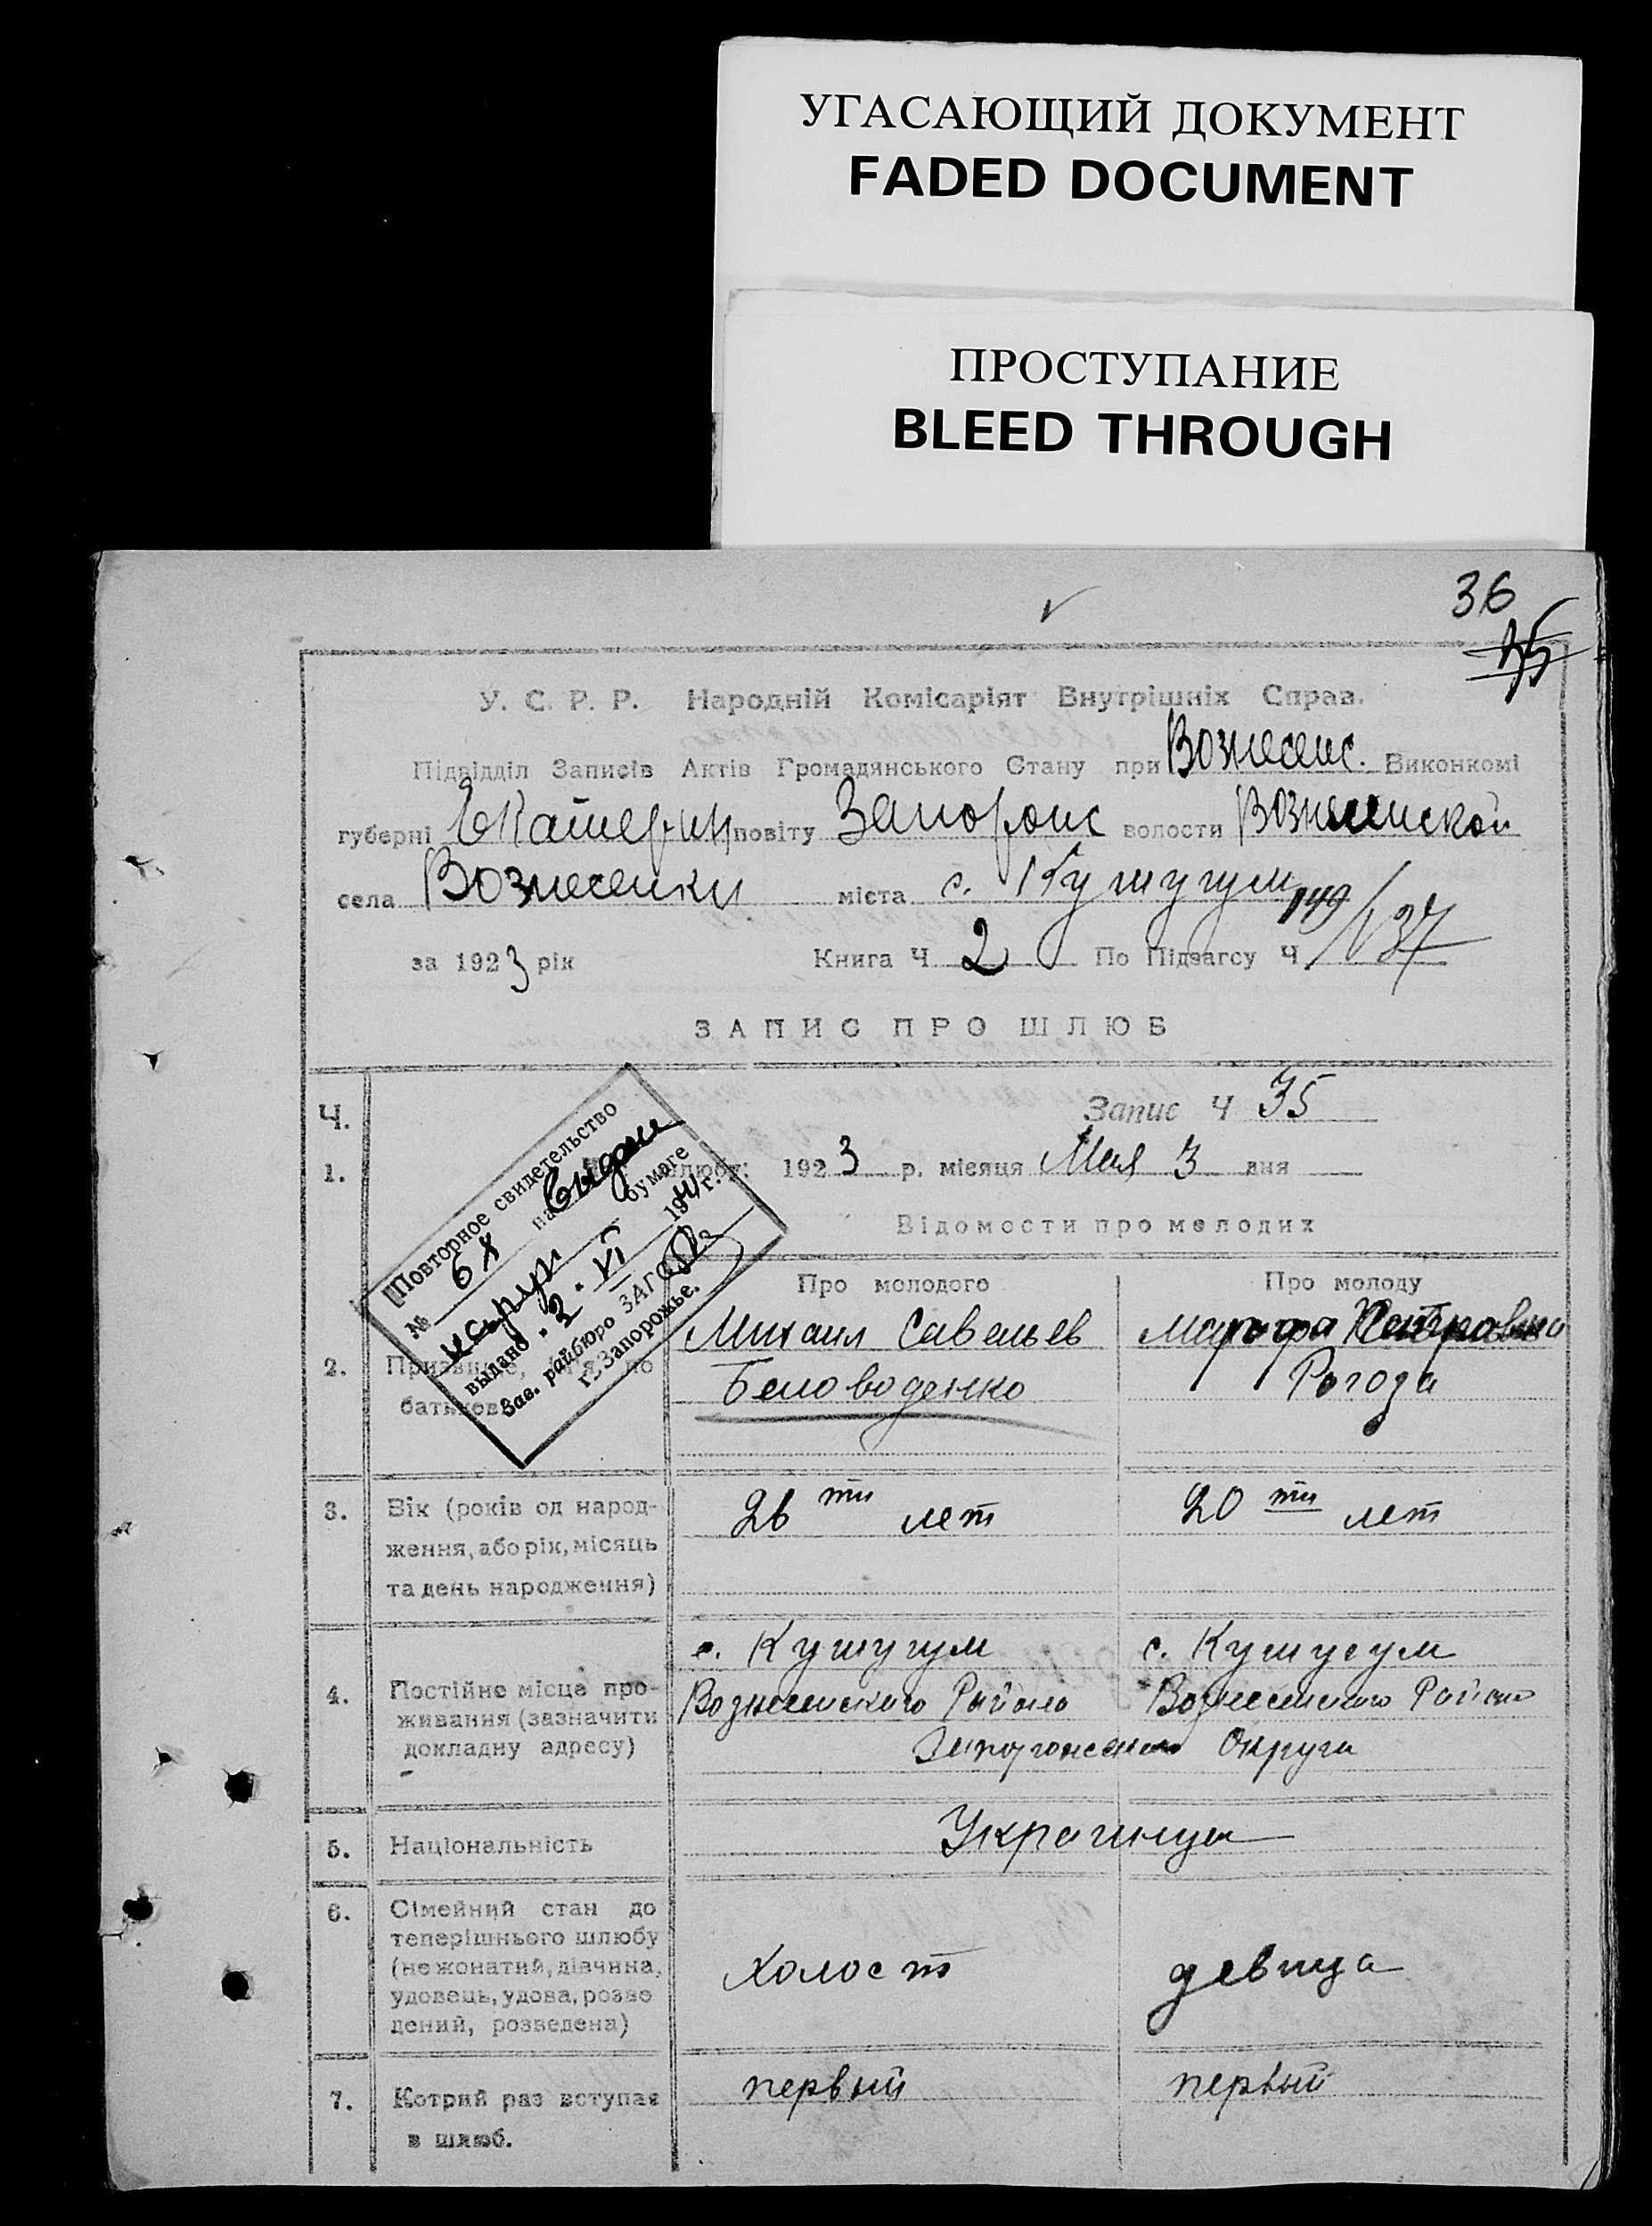 УГАСАЮЩИЙ ДОКУМЕНТ
FADED DOCUMENT
ПРОСТУПАНИЕ
BLEED THROUGH
36
35
У. С. Р. Р. Народній Комісаріят Внутрішніх Справ.
Підвідділ Записів Актів Громадянського Стану при Вознесенс. Виконкомі
губерні Екатерин повіту Запорож волости Вознесенской
села Вознесенки міста с. Кушугум
за 1923 рік Книга Ч 2 По Підзагсу Ч 149/137
ЗАПИС ПРО ШЛЮБ
Ч. Запис Ч 35
1. шлюбу: 1923 р. місяця Мая 3 дня
Відомости про молодих
Повторное свидетельство
№ на бумаге
выдано 3. VI 1941 г.
Зав. райбюро ЗАГС
г. Запорожье.
Про молодого Про молоду
2. Призвище, по батькові
Михаил Савельев Марфа Петровна
Беловоденко Рогоза
3. Вік (років од народ-
ження, або рік, місяць
та день народження)
26 ти лет 20 ти лет
4. Постійне місце про-
живання (зазначити
докладну адресу)
с. Кушугум с. Кушугум
Вознесенского Района Вознесенского Района
Запорожского Округа
5. Національність Украинцы
6. Сімейний стан до
теперішнього шлюбу
(не жонатий, дівчина,
удовець, удова, розве
дений, розведена)
холост девица
7. Котрий раз вступає
в шлюб.
первый первый